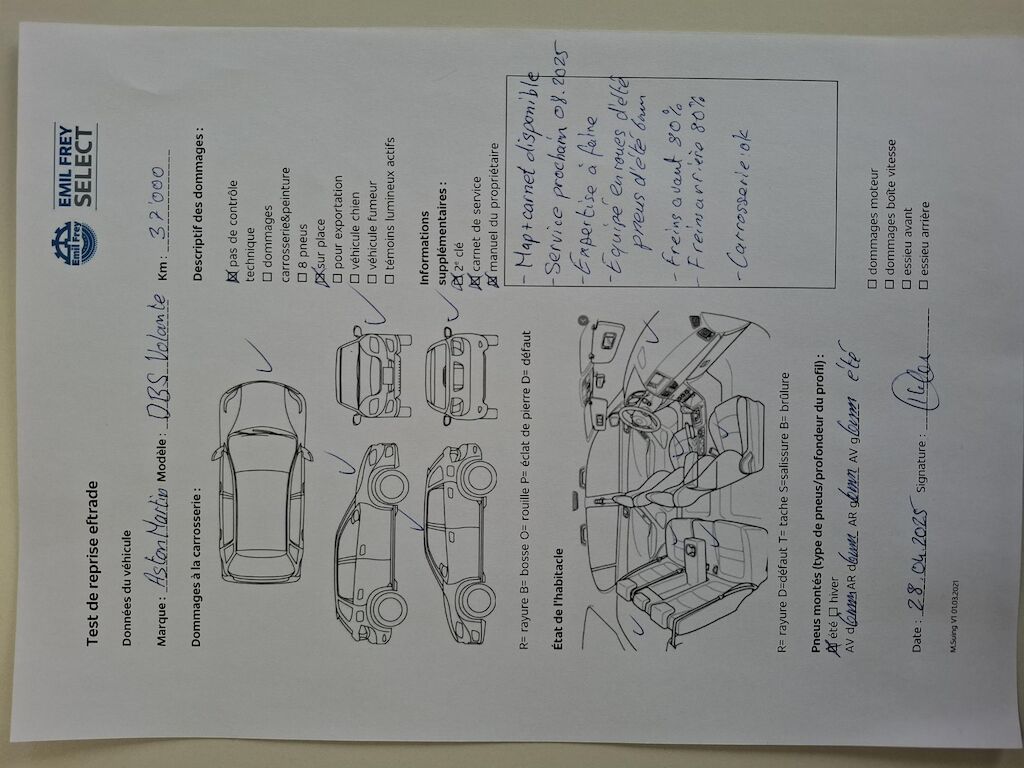 Emil Frey
EMIL FREY
SELECT
Test de reprise eftrade
Données du véhicule
Marque : Aston Martin Modèle : DBS Volante Km : 37'000
Dommages à la carrosserie :
Descriptif des dommages :
☒ pas de contrôle
technique
☐ dommages
carrosserie&peinture
☐ 8 pneus
☒ sur place
☐ pour exportation
☐ véhicule chien
☐ véhicule fumeur
☐ témoins lumineux actifs
Informations
supplémentaires :
☒ 2e clé
☒ carnet de service
☒ manuel du propriétaire
R= rayure B= bosse O= rouille P= éclat de pierre D= défaut
État de l'habitacle
- Map + carnet disponible
- Service prochain 08.2025
- Expertise à faire
- Equipé en roues d'été
pneus d'été 6mm
- Freins avant 80%
- Frein arrière 80%
- Carrosserie ok
R= rayure D=défaut T= tache S=salissure B= brûlure
Pneus montés (type de pneus/profondeur du profil) :
☒ été ☐ hiver
AV d 6mm AR d 6mm AR g 6mm AV g 6mm été
☐ dommages moteur
☐ dommages boîte vitesse
☐ essieu avant
☐ essieu arrière
Date : 28.04.2025 Signature :
M.Suing V1 01.03.2021